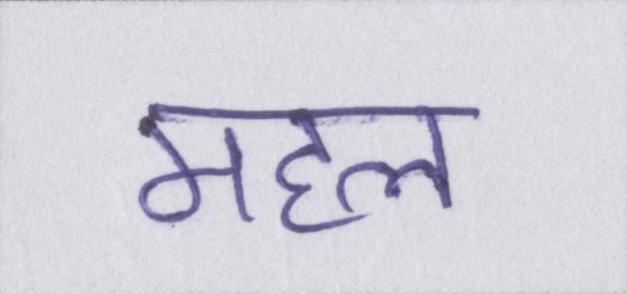 महल